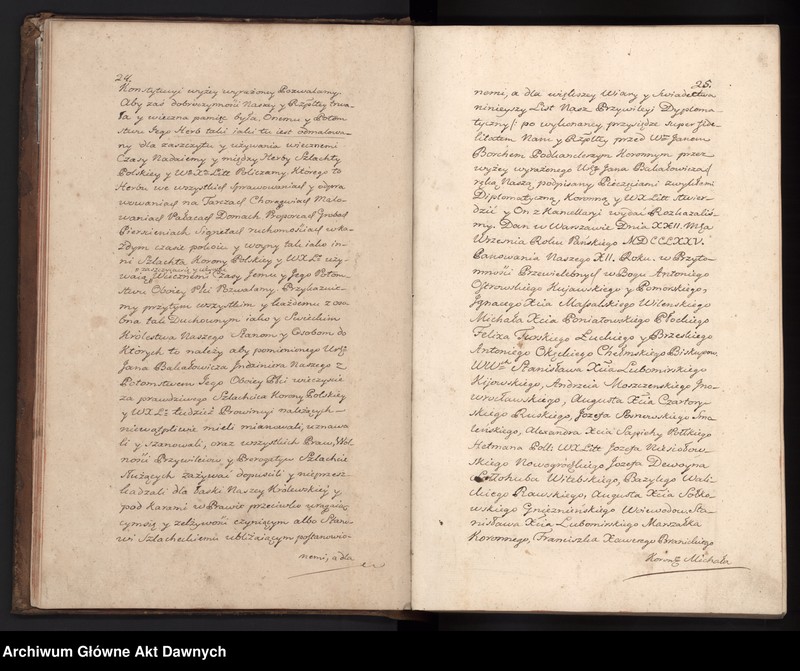 24.
Konstytucyi wyżey wyrażoney Pozwalamy.
Aby zaś dobroczynność Naszey y Rzpltey trwa-
ła y wieczna pamięć była. Onemu y Potom
stwu Jego Herb taki iaki tu iest odmalowa-
ny dla zaszczytu y używania wiecznemi
Czasy Nadaiemy y między Herby Szlachty
Polskiey y W° X° Litt Policzamy. Którego to
Herbu we wszystkich sprawowaniach y odpra
wowaniach na Tarczach Chorągwiach Malo-
waniach Pałacach Domach Proporcach Grobach
Pierścieniach Signetach ruchomościach w ka-
żdym czasie pokoiu y woyny tak iako in-
ni Szlachta Korony Polskiey y WXLo uży-
waią Wiecznemi Czasy Jemu y Jego Potom
stwu Oboiey Płci Pozwalamy. Przykazuie-
my przytym wszystkim y każdemu z oso
bna tak Duchownym iako y Swieckim
Królestwa Naszego Stanom y Osobom do
których to należy aby pomienionego Urzo
Jana Bakałowicza Indzinura Naszego z
Potomstwem Jego Oboiey Płci wieczyście
za prawdziwego Szlachcica Korony Polskiey
y WXLo tudzież Prowincyi należących
niewątpliwie mieli mianowali, uznawa
li y szanowali, oraz wszystkich Praw, Wol
ności Przywileiow y Prerogatyw Szlachcie
służących zażywać dopuścili y nieprzesz
kadzali dla łaski Naszey Królewskiey y
pod karami w Prawie przeciwko
cymsię y zelżywość czyniącym albo Stano
wi Szlacheckiemu ubliżaiącym postanowio-
nemi, a dla
25.
nemi, a dla większey Wiary y Swiadectwa
ninieyszy List Nasz Przywiley Dyploma-
tyczny /: po wykonaney przysiędze super fide-
litatem Nam y Rzpltey przed Wm Janem
Borchem Podkanclerzym Koronnym przez
wyżey wyrażonego Urzo Jana Bakałowicza/
ręką Naszą podpisany Pieczęciami zwykłemi
Dyplomatyczną Koronną y WXLitt stwier-
dzić y On z Kancellaryi wydać Rozkazaliś-
my. Dan w Warszawie Dnia XXII. Mca
Września Roku Pańskiego MDCCLXXV.
Panowania Naszego XII. Roku. w Przyto-
mności Przewielebnych w Bogu Antoniego
Ostrowskiego Kujawskiego y Pomorskiego,
Jgnacego Xcia Massalskiego Wilenskiego
Michała Xcia Poniatowskiego Płockiego
Felixa Turskiego Łuckiego y Brzeskiego
Antoniego Okęckiego Chełmskiego Biskupow.
WWch Stanisława Xcia Lubomirskiego
Kijowskiego, Andrzeia Moszczenskiego Jno-
wrocławskiego, Augusta Xcia Czartory-
skiego Ruskiego, Jozefa Sosnowskiego Smo-
leńskiego, Alexandra Xcia Sapiehy Połtkiego
Hetmana Poll: WXLitt Jozefa Niesiołow-
skiego Nowogrodzkiego Jozefa Dewoyna
Sołłohuba Witebskiego, Bazylego Wali-
ckiego Rawskiego, Augusta Xcia Sułko-
wskiego Gnieznieńskiego Woiewodow, Sta-
nisława Xcia Lubomirskiego Marszałka
Koronnego, Franciszka Xawerego Branickiego
Koronno Michała
Archiwum Główne Akt Dawnych